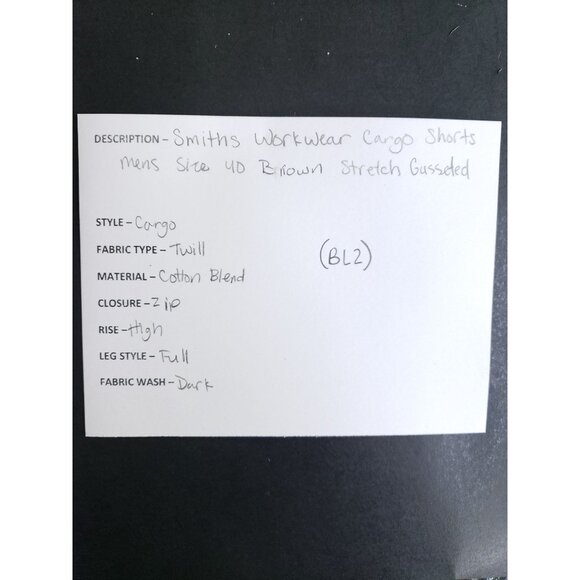 DESCRIPTION - Smiths Workwear Cargo Shorts
Mens Size 40 Brown Stretch Gusseted
STYLE - Cargo
FABRIC TYPE - Twill
(BL2)
MATERIAL - Cotton Blend
CLOSURE - Zip
RISE - High
LEG STYLE - Full
FABRIC WASH - Dark